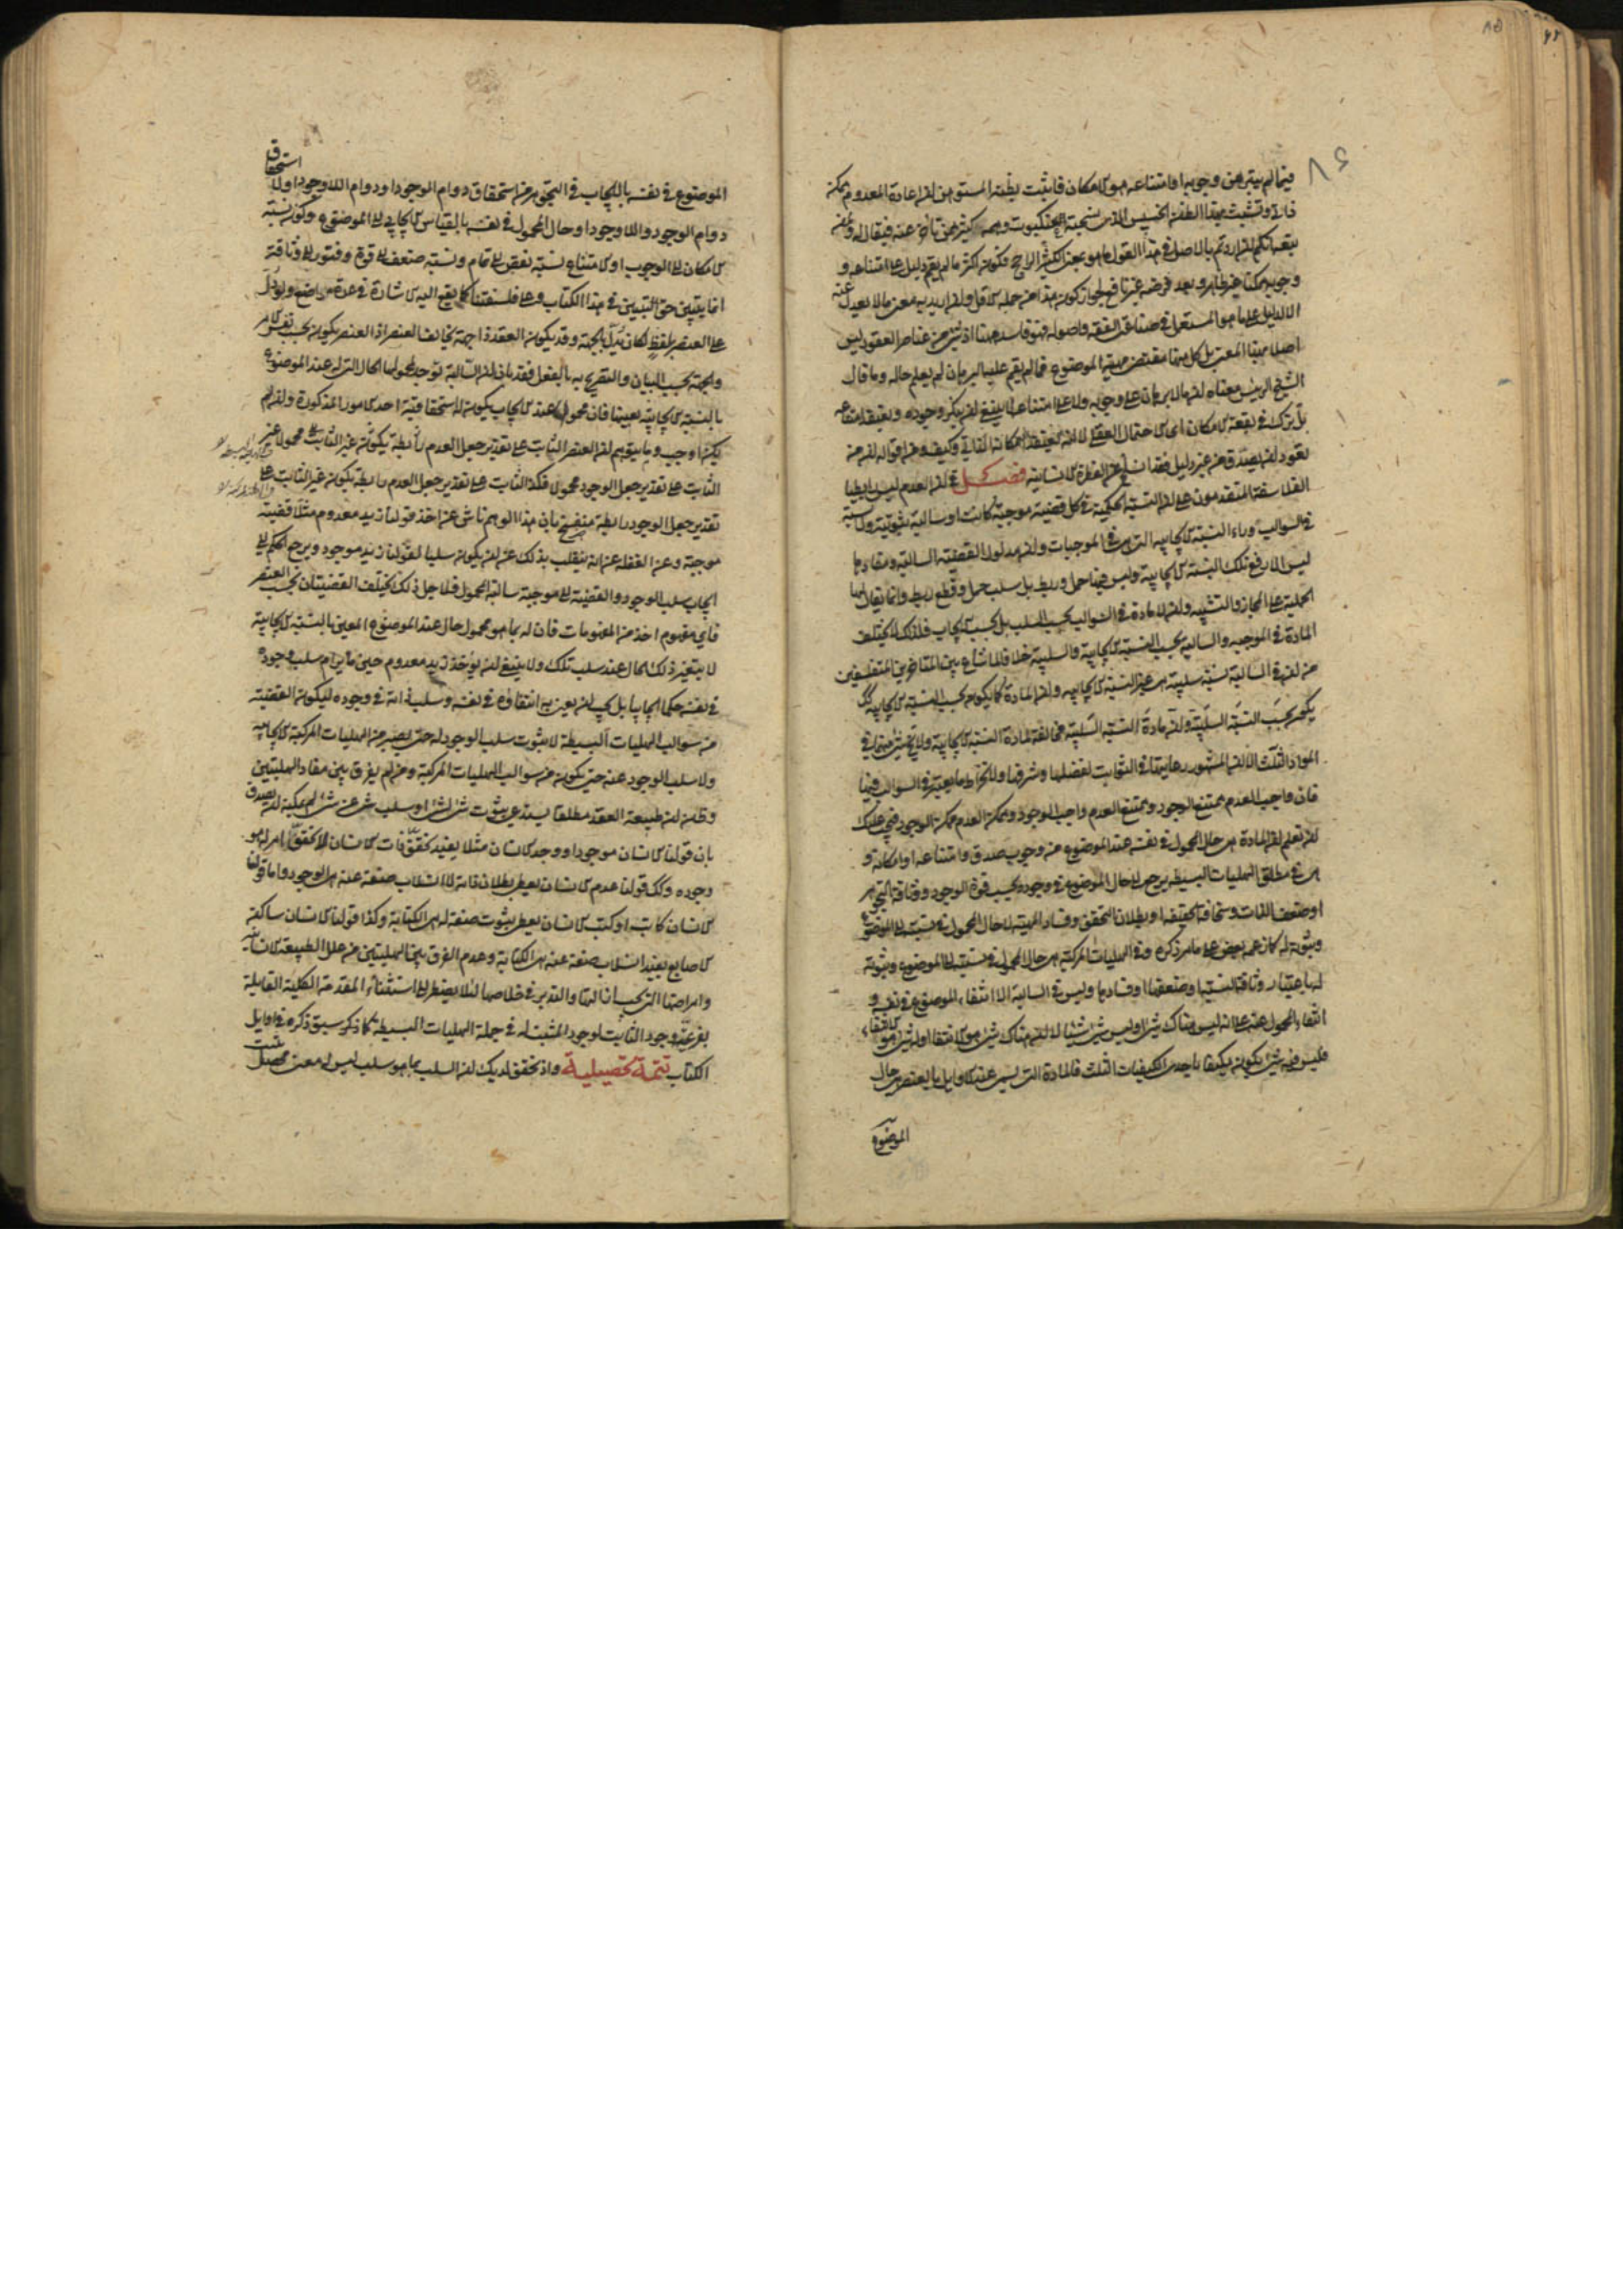 ٨٥
٨٤
فيما لم يتبرهن وجوبه او امتناعه هو الامكان فاثبت بظنه المستوهن ان اعادة المعدوم ممكن
ذاتي وتشبث بهذا الظن الخبيث الذي نسجه العنكبوت وهمه كثير ممن تاخر عنه فيقال له ولمن
تبعه انكم ان اردتم بالاصل في هذا القول ما هو بمعنى الكثير الراجح فكون اكثر ما لم يقم دليل على امتناعه و
وجوبه ممكنا غير ظاهر وبعد فرضه غير نافع لجواز كون هذا من جملة الاقل وان اريد به معنى ما لا يعدل عنه
الا لدليل على ما هو المستعمل في صناعتى الفقه واصوله فهو فاسد ههنا اذ شئ من عناصر العقود ليس
اصلا بهذا المعنى بل كل منها مقتضى مهية الموضوع فما لم يقم عليه البرهان لم يعلم حاله وما قال
الشيخ الرئيس معناه ان ما لا برهان على وجوبه ولا على امتناعه لا ينبغى ان ينكر وجوده ويعتقد امتناعه
بل يترك في بقعة الامكان اى الاحتمال العقلى لا انه يعتقد امكانه الذاتي وكيف ومن اقواله ان من
تعود ان يصدق من غير دليل فقد انسلخ عن الفطرة الانسانية فصل في ان العدم ليس رابطيا
الفلاسفة المتقدمون على ان النسبة الحكمية في كل قضية موجبة كانت او سالبة ثبوتية ولا نسبة
في السوالب وراء النسبة الايجابية التي هى في الموجبات وان مدلول القضية السالبة ومفادها
ليس الا رفع تلك النسبة الايجابية وليس فيها حمل وربط بل سلب حمل وقطع ربط وانما يقال لها
الحملية على المجاز والتشبيه وان لا مادة في السوالب بحسب السلب بل بحسب الايجاب فلذلك لا يختلف
المادة في الموجبة والسالبة بحسب النسبة الايجابية والسلبية خلافا لما شاع بين المتاخرين المتفلسفين
من ان في السالبة نسبة سلبية هى غير النسبة الايجابية وان المادة كما يكون بحسب النسبة الايجابية كذلك
يكون بحسب النسبة السلبية وان مادة النسبة السلبية مخالفة لمادة النسبة الايجابية ولا يخلو شئ منهما في
المواد الثلث الا ان المشهور رعايتها في الثوابت لفضلها وشرفها ولانخراط ما يعتبر في السوالب فيها
فان واجب العدم ممتنع الوجود وممتنع العدم واجب الوجود وممكن العدم ممكن الوجود فيجب عليك
ان تعلم ان المادة هى حال المحمول في نفسه عند الموضوع من وجوب صدق وامتناعه او امكانه و
هى في مطلق الهليات البسيطة يرجع الى حال الموضوع في وجوده بحسب قوة الوجود ووثاقة التجوهر
او ضعف الذات وسخافة الحقيقة او بطلان التحقق وفساد المهية لا حال المحمول في نسبته الى الموضوع
وثبوته له كما زعمه بعض على ما مر ذكره وفي الهليات المركبة هى حال المحمول في نسبته الى الموضوع وثبوته
له باعتبار وثاقة النسبة وضعفها او فسادها وليس في السالبة الا انتفاء الموضوع في نفسه و
انتفاء المحمول عنه على انه ليس هناك شئ او ليس شئ شيئا لا ان هناك شئ هو الانتفاء او لشئ هو الانتفاء
فليس فيه شئ يكون مكيفا باحدى الكيفيات الثلث فالمادة التي يسمى عند الاوايل بالعنصر هى حال
الموضوع
الموضوع في نفسه بالايجاب في التجوهر من استحقاق دوام الوجود او دوام اللاوجود او لا استحقاق
دوام الوجود واللاوجود او حال المحمول في نفسه بالقياس الايجابى الى الموضوع وكون نسبة
الامكان الى الوجوب او الامتناع نسبة نقص الى تمام ونسبة ضعف الى قوة وفتور الى وثاقة
انما يتبين حق التبيين في هذا الكتاب وعلى فلسفتنا كما يقع اليه الاشارة في عدة مواضع ولو دل
على العنصر بلفظ لكان يدل بالجهة وقد يكون العقد ذا جهة يخالف العنصر اذ العنصر يكون بحسب نفس الامر
والجهة بحسب البيان والتصريح به بالفعل فقد بان ان السالبة توجد لمحمولها الحال التي له عند الموضوع
بالنسبة الايجابية بعينها فان محمولها عند الايجاب يكون له استحقاقية احد الامور المذكورة وان لم
يكن اوجب وما يتوهم ان العنصر الثابت على تقدير جعل العدم رابطة يكون غير الثابت على محمولا
الثابت على تقدير جعل الوجود محمولا فكذا الثابت على تقدير جعل العدم رابطة يكون غير الثابت على
تقدير جعل الوجود رابطة منفسخ بان هذا الوهم ناش عن اخذ قولنا زيد معدوم مثلا قضية
موجبة وعن الغفلة عن انه ينقلب بذلك عن ان يكون سلبا لقولنا زيد موجود ويرجع الحكم الى
ايجاب سلب الوجود والقضية الى موجبة سالبة المحمول فلاجل ذلك يختلف القضيتان بحسب العنصر
فاى مفهوم اخذ من المفهومات فان له بما هو محمول حال عند الموضوع المعين بالنسبة الايجابية
لا يتغير ذلك الحال عند سلب تلك ولا ينبغى ان يؤخذ زيد معدوم حين ما يرام سلب وجوده
في نفسه حكما ايجابيا بل يجب ان يعنى به انتفاؤه في نفسه وسلب ذاته في وجوده ليكون القضية
من سوالب الهليات البسيطة لا ثبوت سلب الوجود له حتى يصير من الهليات المركبة الايجابية
ولا سلب الوجود عنه حتى يكون من سوالب الهليات المركبة ومن لم يفرق بين مفاد الهليتين
وظن ان طبيعة العقد مطلقا يستدعى ثبوت شئ لشئ او سلب شئ عن شئ لم يمكنه ان يصدق
بان قولنا الانسان موجود او وجد الانسان مثلا يفيد تحقق ذات الانسان لا تحقق امر له هو
وجوده وكذلك قولنا عدم الانسان يعطى بطلان ذاته لا انسلاب صفة عنه هى الوجود واما قولنا
الانسان كاتب او كتب الانسان يعطى ثبوت صفة له هى الكتابة وكذا قولنا الانسان ساكن
الاصابع يفيد انسلاب صفة عنه هى الكتابة وعدم الفرق بين الهليتين من علل الطبيعة الانسانية
وامراضها التي يجب ان
بفرعية وجود الثابت لوجود المثبت له في جملة الهليات البسيطة كما ذكر سبق ذكره في اوايل
الكتاب تتمة تحصيلية واذ تحقق لديك ان السلب بما هو سلب ليس له معنى محصل يثبت